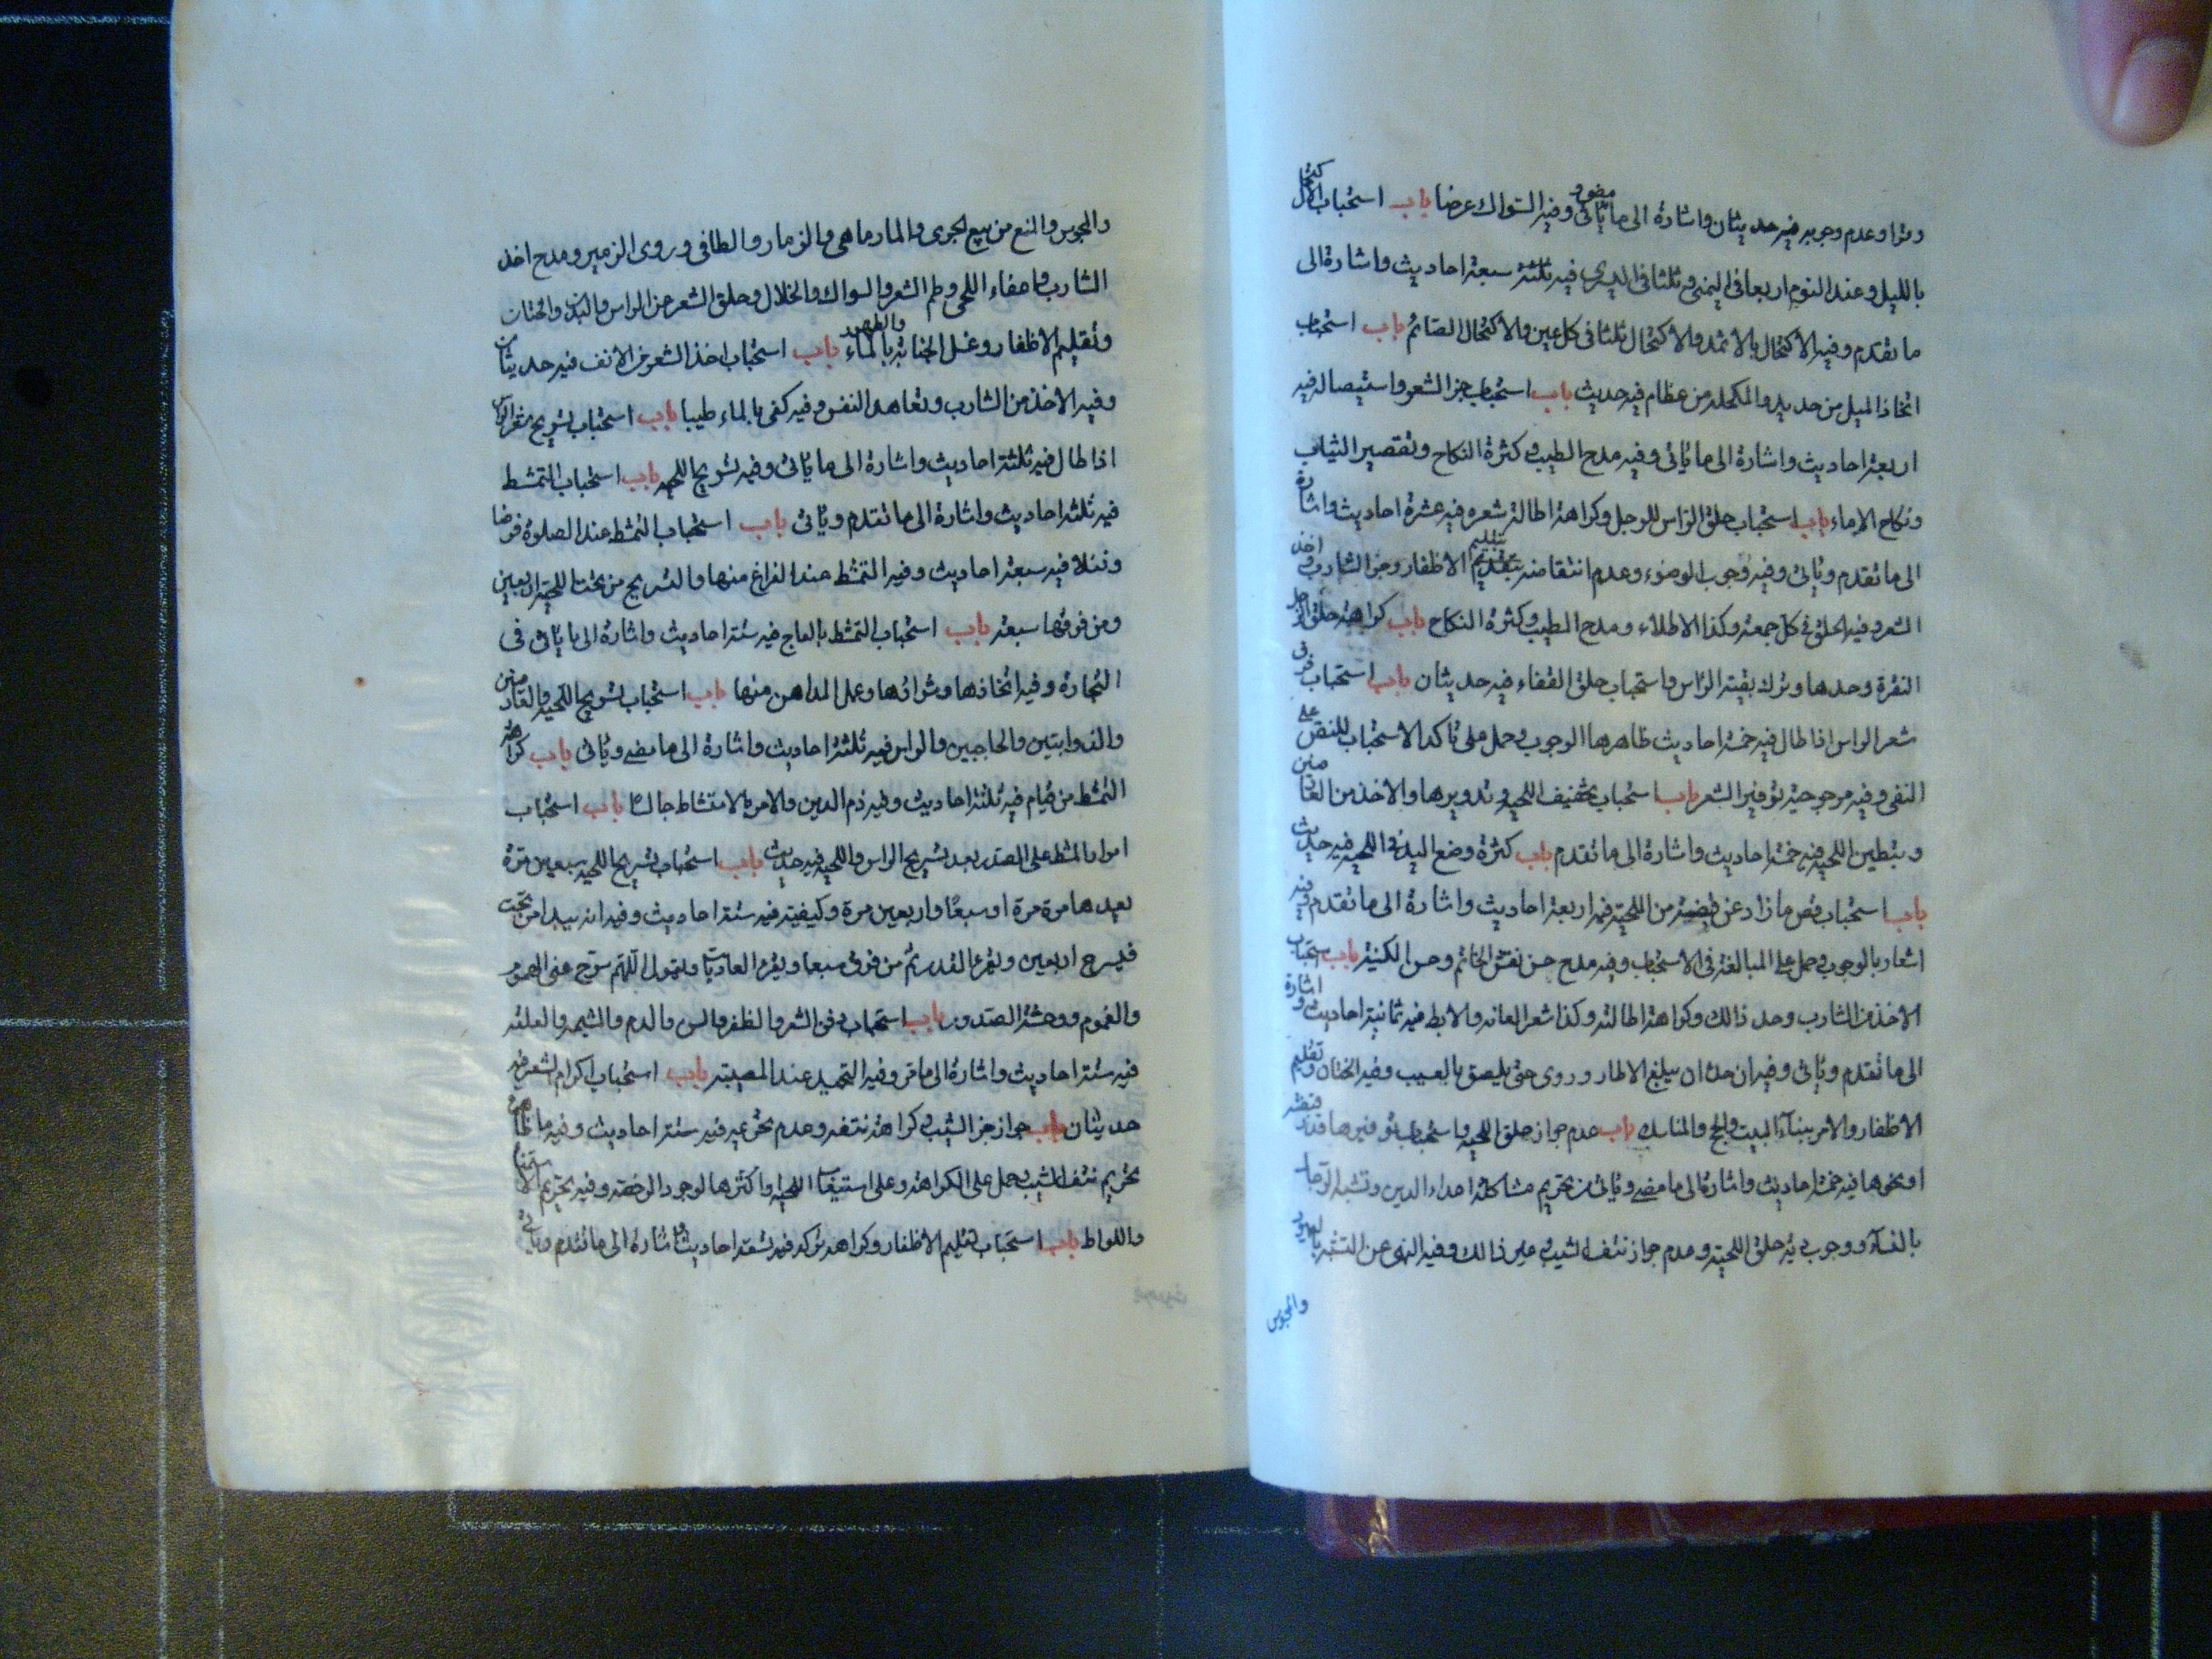 وترا وعدم وجوبه فيه حديثان واشارة الى ما يأتى وفيه السواك عرضا باب استحباب الاكتحال
بالليل وعند النوم اربعا فى اليمنى وثلثا فى اليسرى فيه ثلثة سبعة احاديث واشارة الى
ما تقدم وفيه الاكتحال بالاثمد والاكتحال ثلثا فى كل عين والاكتحال الصائم باب استحباب
اتخاذ الميل من حديد والمكحلة من عظام فيه حديث باب استحباب جز الشعر واستيصاله فيه
اربعة احاديث واشارة الى ما يأتى وفيه مدح الطيب وكثرة النكاح وتقصير الثياب
ونكاح الاماء باب استحباب حلق الراس للرجل وكراهة اطالة شعره فيه عشرة احاديث واشارة
الى ما تقدم ويأتى وفيه وجوب الوضوء وعدم انتقاضه بتقليم الاظفار وجز الشارب واخذ
الشعر وفيه الحلق فى كل جمعة وكذا الاطلاء ومدح الطيب وكثرة النكاح باب كراهة حلق الرجل
النقرة وحدها وترك بقية الراس واستحباب حلق القفاء فيه حديثان باب استحباب فرق
شعر الراس اذا طال فيه خمسة احاديث ظاهرها الوجوب وحمل على تاكد الاستحباب للنص على
النفى وفيه مرجوحية توفير الشعر باب استحباب تخفيف اللحية وتدويرها والاخذ من العارضين
وتبطين اللحية فيه خمسة احاديث واشارة الى ما تقدم باب كثرة وضع اليد فى اللحية فيه حديث
باب استحباب قص ما زاد عن قبضة من اللحية فيه اربعة احاديث واشارة الى ما تقدم فيه
اشعار بالوجوب وحمل على المبالغة فى الاستحباب وفيه مدح حسن نقش الخاتم وحسن الكنية باب استحباب
الاخذ من الشارب وحد ذالك وكراهة اطالته وكذا شعر العانة والابط فيه ثمانية احاديث واشارة
الى ما تقدم ويأتى وفيه ان حده ان يبلغ الاطار وروى حتى يلصق بالعسيب وفيه الختان وتقليم
الاظفار والامر ببناء البيت والحج والمناسك باب عدم جواز حلق اللحية واستحباب توفيرها قدر قبضة
او نحوها فيه خمسة احاديث واشارة الى ما مضى ويأتى من تحريم مشاكلة اعداء الدين وتشبه الرجال
بالنساء ووجوب دية حلق اللحية وعدم جواز نتف الشيب وعين ذالك وفيه النهى عن التشبه باليهود
والمجوس
والمجوس والمنع من بيع الجرى والمارماهى والزمار والطافى وروى الزمير ومدح اخذ
الشارب واعفاء اللحى وطم الشعر والسواك والخلال وحلق الشعر من الراس والبدن والختان
وتقليم الاظفار وغسل الجنابة والطهور بالماء باب استحباب اخذ الشعر من الانف فيه حديثان
وفيه الاخذ من الشارب وتعاهد النفس وفيه كفى بالماء طيبا باب استحباب تسريح شعر الراس
اذا طال فيه ثلثة احاديث واشارة الى ما يأتى وفيه تسريح اللحية باب استحباب التمشط
فيه ثلثة احاديث واشارة الى ما تقدم ويأتى باب استحباب التمشط عند الصلوة فرضا
ونفلا فيه سبعة احاديث وفيه التمشط عند الفراغ منها والتسريح من تحت اللحية اربعين
ومن فوقها سبعة باب استحباب التمشط بالعاج فيه ستة احاديث واشارة الى ما يأتى فى
التجارة وفيه اتخاذها وشرائها وعمل المداهن منها باب استحباب تسريح اللحية والعارضين
والذوابتين والحاجبين والراس فيه ثلثة احاديث واشارة الى ما مضى ويأتى باب كراهة
التمشط من قيام فيه ثلثة احاديث وفيه ذم الدين والامر بالامتشاط جالسا باب استحباب
امرار المشط على الصدر بعد تسريح الراس واللحية فيه حديث باب استحباب تسريح اللحية سبعين مرة
يعيدها مرة مرة او سبعا واربعين مرة وكيفيته فيه ستة احاديث وفيه انه يبدا من تحت
فيسرح اربعين ويقرء القدر ثم من فوق سبعا ويقرء العاديات ويقول اللهم سرح عنى الهموم
والغموم ووحشة الصدور باب استحباب دفن الشعر والظفر والسن والدم والمشيمة والعلقة
فيه ستة احاديث واشارة الى ما مر وفيه التحميد عند المصيبة باب استحباب اكرام الشعر فيه
حديثان باب جواز جز الشيب وكراهة نتفه وعدم تحريمه فيه ستة احاديث وفيه ما ظاهره
تحريم نتف الشيب حمل على الكراهة وعلى استيعاب اللحية واكثرها لوجود الرخصة وفيه تحريم الاستمناء
واللواط باب استحباب تقليم الاظفار وكراهة تركه فيه تسعة احاديث واشارة الى ما تقدم ويأتى